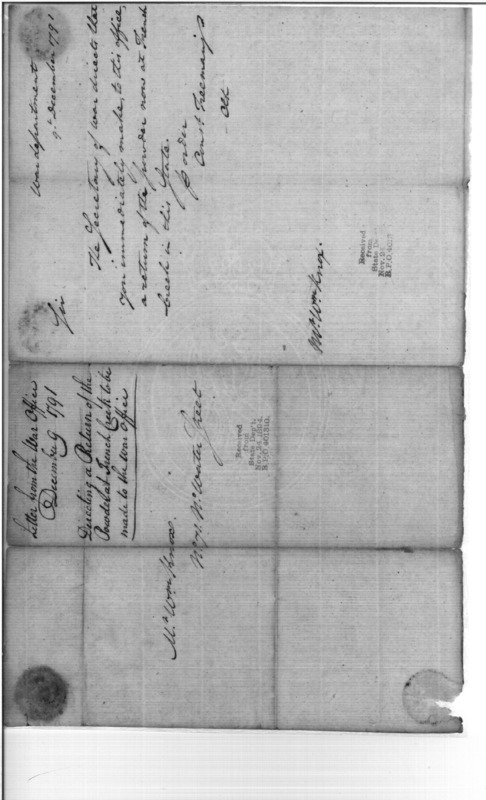 War department
9th December 1791
Sir
The Secretary of war directs that
you immediately make, to this office,
a return of the powder now at French
Creek in this State.
p order
Const Freeman jr
Clk
Mr Wm Knox.
Received
from
State De
Nov. 24
R.P.O 4013
Letter from the War Office
December 9 1791
Directing a Return of the
Powder at French Creek to be
made to the War Office
Mr Wm Knox.
No Water Street
Received
from
State Dep't.
Nov. 24, 1894.
R.P.O 401310.